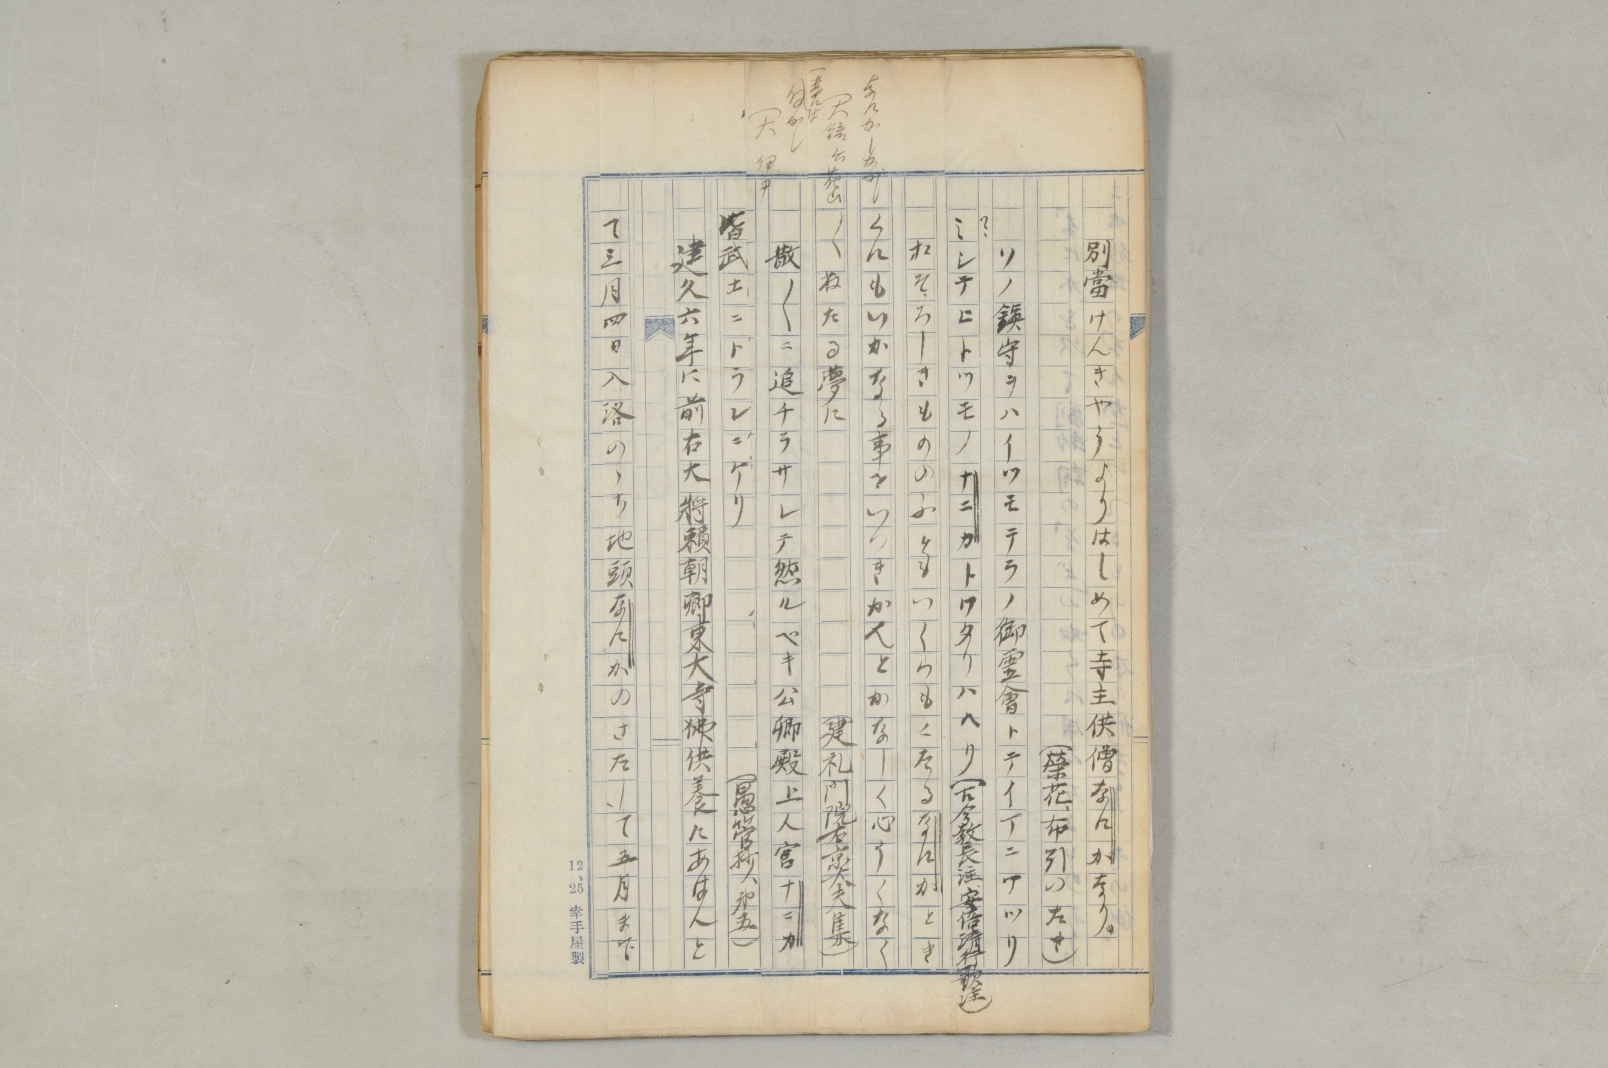 別當けんきやうよりはしめて寺主供僧なにかなり。
(榮花、布引いたき)
ソノ鎮守ヲハイツモテラノ御霊會トテイイニワツリ
ミシテヒトツモノナニカトワタリハヘリ(古今教長注、安倍清行歌注)
おそろしきもののふともいくらもくたるなにかとき
くにもいかなる事をいつきかんとかなしく心うくなく
〱ねたる夢に
建礼門院右京大夫集)
散〱ニ追チラサレテ然ルベキ公卿殿上人宮ナニカ
皆武士ニトラレニケリ
(愚管抄、第五)
建久六年に前右大將頼朝卿東大寺佛供養にあはんと
て三月四日入洛のゝち地頭なにかのさたして五月まで
12、25 幸手屋製